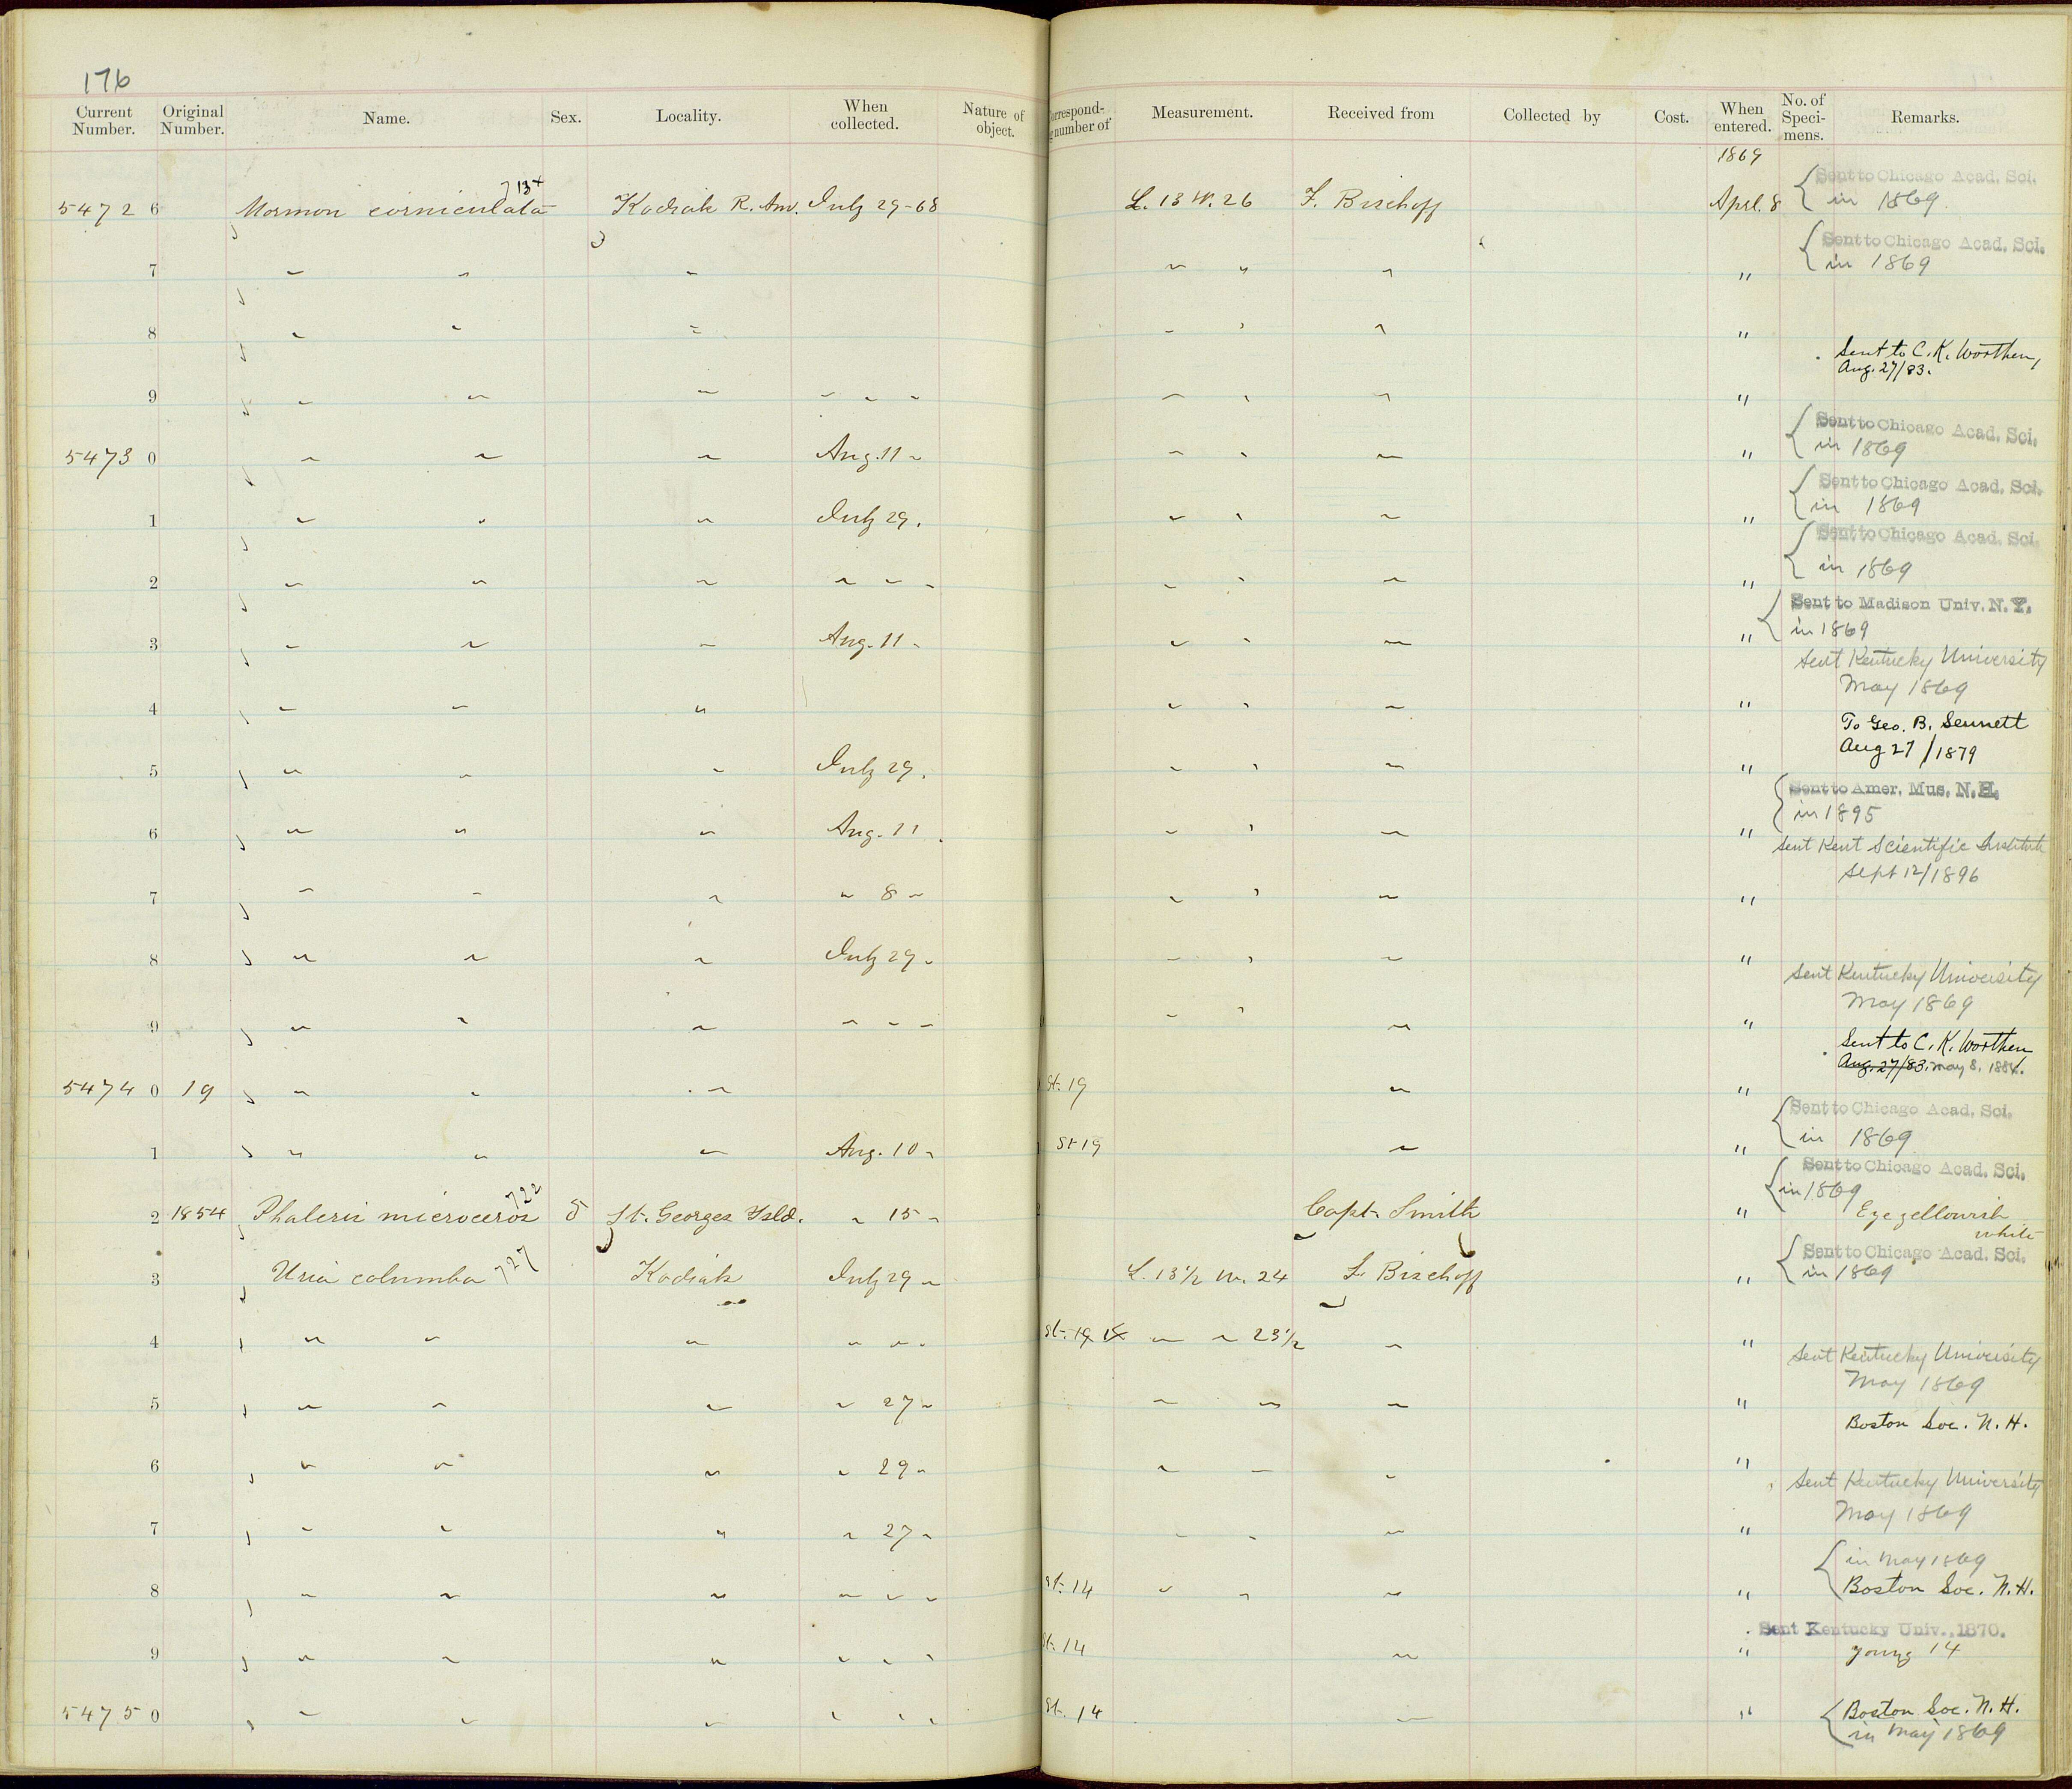 176
Current Number. Original Number. Name. Sex. Locality. When collected. Nature of object. orrespond- g number of Measurement. Received from Collected by Cost. When entered. No. of Speci- mens. Remarks.
1869
5472 6 Mormon corniculata 713+ Kodiak R. Am. July 29-68 L. 13 W. 26 F. Bischoff Aprl. 8 { Sent to Chicago Acad. Sci.
in 1869.
7 " " " " " " " { Sent to Chicago Acad. Sci.
in 1869
8 " " " " " " "
Sent to C. K. Worthen,
Aug. 27/83.
9 " " " " " " " " " "
5473 0 " " " Aug. 11 " " " " " { Sent to Chicago Acad. Sci.
in 1869
1 " " " July 29. " " " " { Sent to Chicago Acad. Sci.
in 1869
2 " " " " " " " " " " { Sent to Chicago Acad. Sci.
in 1869
3 " " " Aug. 11 " " " " " { Sent to Madison Univ. N. Y.
in 1869
Sent Kentucky University
May 1869
4 " " " " " " "
To Geo. B. Sennett
Aug 27/1879
5 " " " July 29. " " " "
6 " " " Aug. 11 " " " " { Sent to Amer. Mus. N. H.
in 1895
Sent Kent Scientific Institute
Sept 12/1896
7 " " " " 8 " " " " "
8 " " " July 29 " " " " "
Sent Kentucky University
May 1869
9 " " " " " " " " " "
Sent to C. K. Worthen
Aug. 27/83. May 8, 1884.
5474 0 19 " " " St. 19 " "
1 " " " Aug. 10 " St 19 " " { Sent to Chicago Acad. Sci.
in 1869
2 1854 Phaleris microceros 722 ♂ St. Georges Isld. " 15 " Capt. Smith " { Sent to Chicago Acad. Sci.
in 1869
Eye yellowish
white
3 Uria columba 727 Kodiak July 29 " L. 13 1/2 W. 24 F. Bischoff " { Sent to Chicago Acad. Sci.
in 1869
4 " " " " " " St. 14 " " 23 1/2 " "
Sent Kentucky University
May 1869
5 " " " " 27 " " " " "
Boston Soc. N. H.
6 " " " " 29 " " " " "
Sent Kentucky University
May 1869
7 " " " " 27 " " " " "
8 " " " " " " St. 14 " " " " { in May 1869
Boston Soc. N. H.
9 " " " " " " St. 14 " " Sent Kentucky Univ., 1870.
young 14
5475 0 " " " " " " St. 14 " " { Boston Soc. N. H.
in May 1869